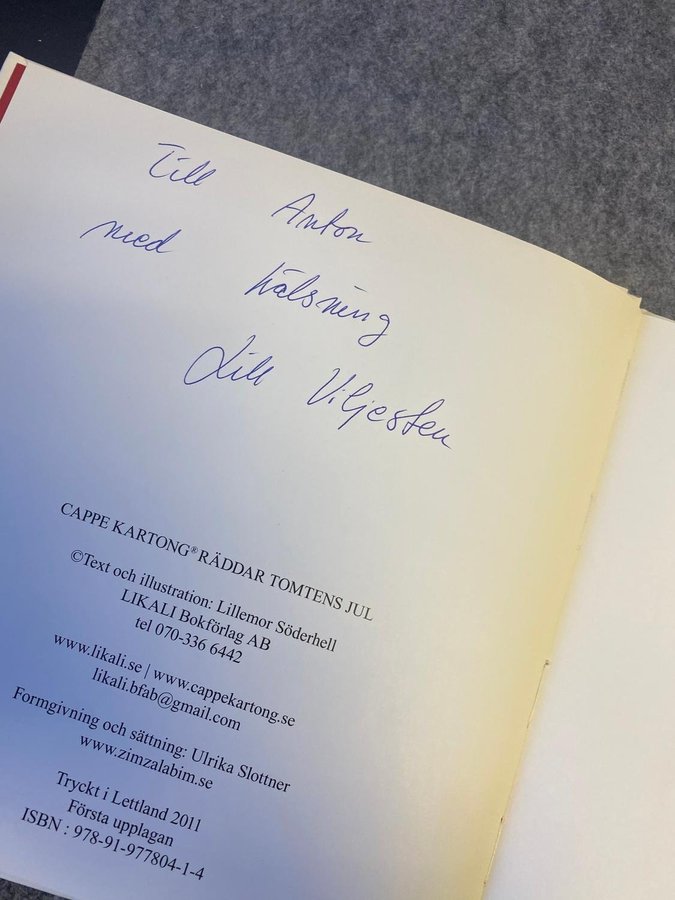 Till Anton
med hälsning
Lill Viljesten
CAPPE KARTONG® RÄDDAR TOMTENS JUL
©Text och illustration: Lillemor Söderhell
LIKALI Bokförlag AB
tel 070-336 6442
www.likali.se | www.cappekartong.se
likali.bfab@gmail.com
Formgivning och sättning: Ulrika Slottner
www.zimzalabim.se
Tryckt i Lettland 2011
Första upplagan
ISBN : 978-91-977804-1-4